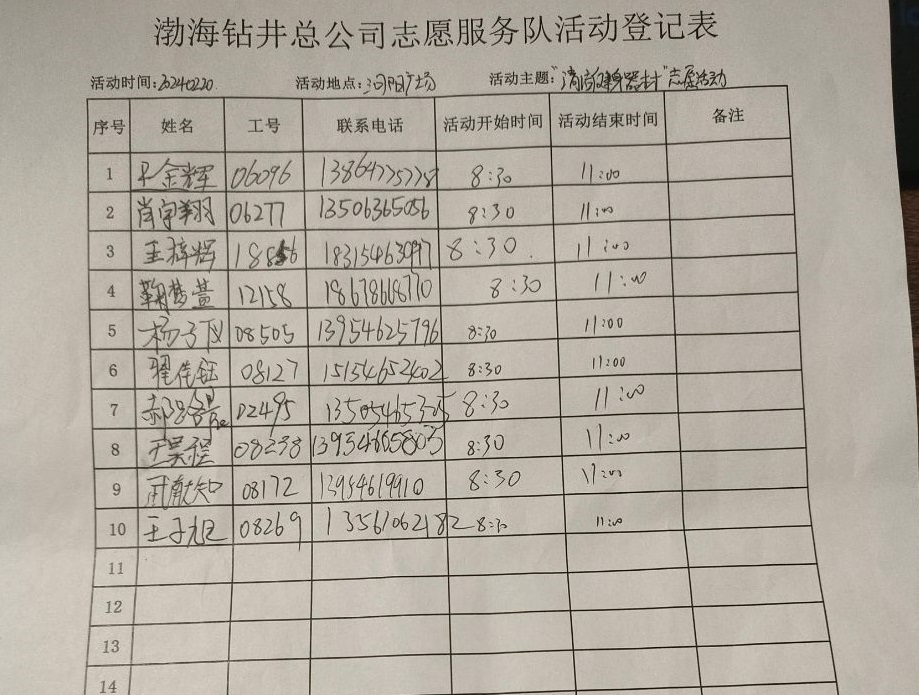 渤海钻井总公司志愿服务队活动登记表
活动时间:20240220. 活动地点:河阳广场 活动主题:"清洁健身器材"志愿活动
序号 姓名 工号 联系电话 活动开始时间 活动结束时间 备注
1 金辉 06096 13864775778 8:30 11:00
2 肖宇翔 06277 13506365056 8:30 11:00
3 王梓辉 18856 18315463097 8:30. 11:00
4 鞠梦萱 12158 18678668770 8:30 11:00
5 杨子 08505 13954625796 8:30 11:00
6 翟佳钰 08127 15154652402 8:30 11:00
7 郝 02495 13505465305 8:30 11:00
8 王昊程 08238 13954605803 8:30 11:00
9 献知 08172 13954619910 8:30 11:00
10 王子旭 08269 13561062182 8:30 11:00
11
12
13
14